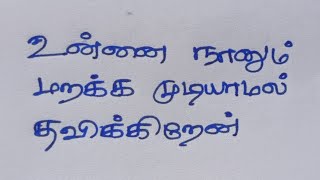 உன்னை நானும்
மறக்க முடியாமல்
தவிக்கிறேன்